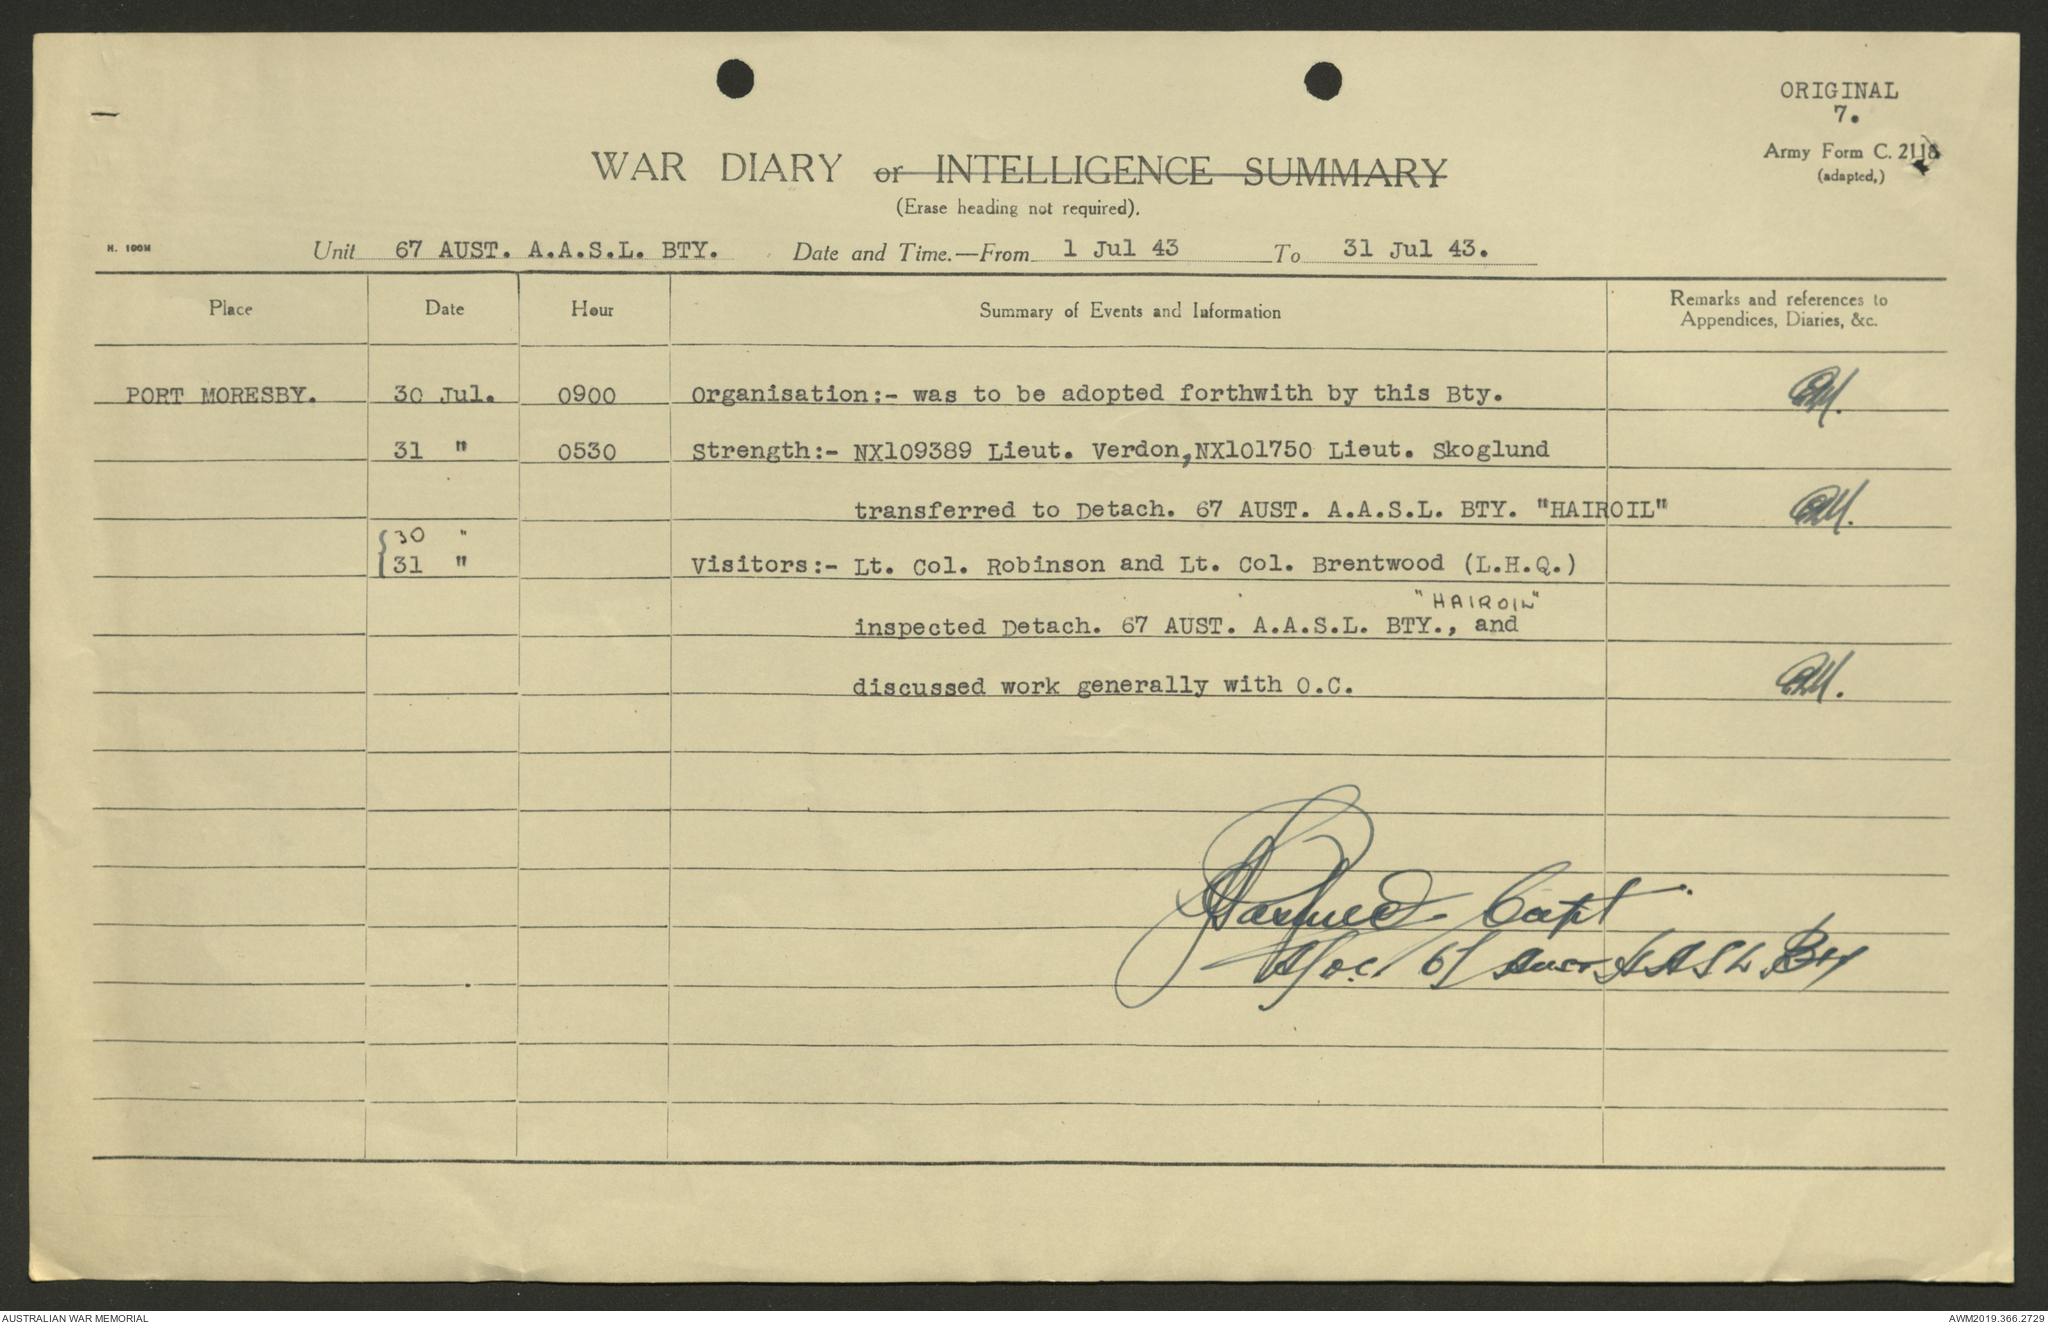 ORIGINAL
7.
Army Form C. 2118
(adapted,)
WAR DIARY or INTELLIGENCE SUMMARY
(Erase heading not required).
H. 100M
Unit 67 AUST. A.A.S.L. BTY. Date and Time.—From 1 Jul 43 To 31 Jul 43.
Place Date Hour Summary of Events and Information Remarks and references to
Appendices, Diaries, &c.
PORT MORESBY. 30 Jul. 0900 Organisation:- was to be adopted forthwith by this Bty.
31 " 0530 Strength:- NX109389 Lieut. Verdon,NX101750 Lieut. Skoglund
transferred to Detach. 67 AUST. A.A.S.L. BTY. "HAIROIL"
30 "
31 " Visitors:- Lt. Col. Robinson and Lt. Col. Brentwood (L.H.Q.)
"HAIROIL"
inspected Detach. 67 AUST. A.A.S.L. BTY., and
discussed work generally with O.C.
Capt
67 Aust A A S L Bty
AUSTRALIAN WAR MEMORIAL AWM2019.366.2729